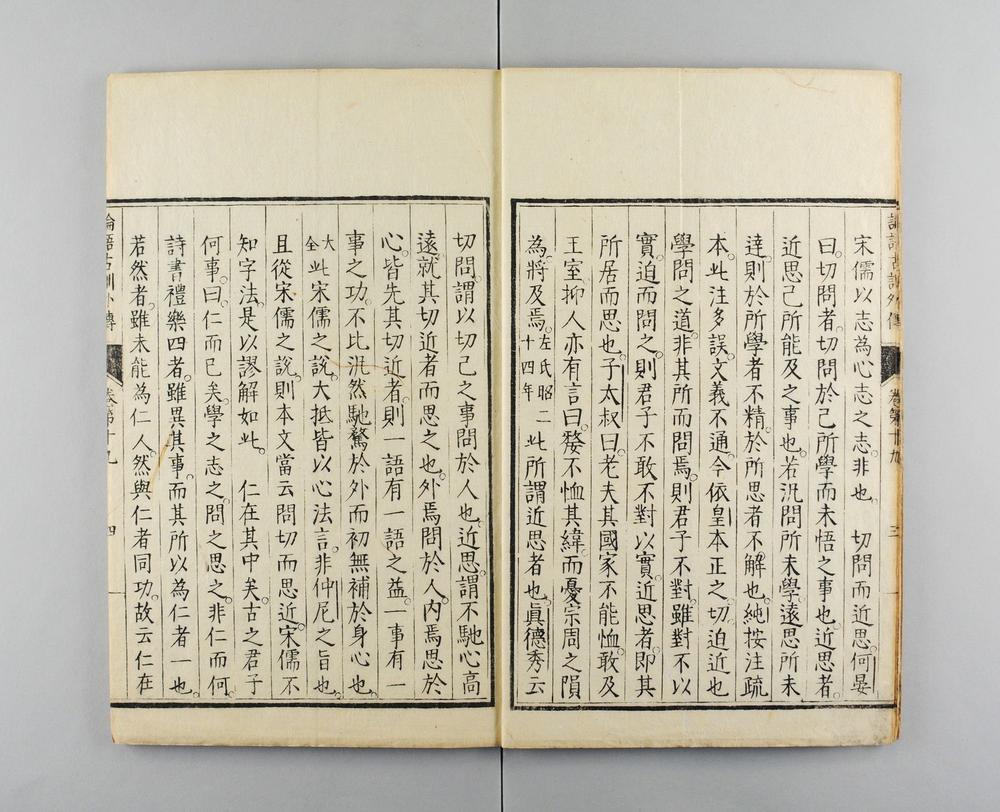 論語古訓外傳　卷第十九　三
宋儒以志為心志之志。非也。　切問而近思。何晏
曰。切問者。切問於己所學而未悟之事也。近思者。
近思己所能及之事也。若汎問所未學。遠思所未
達。則於所學者不精。於所思者不解也。純按注疏
本。此注多誤。文義不通。今依皇本正之。切。迫近也。
學問之道。非其所而問焉。則君子不對。雖對不以
實。迫而問之。則君子不敢不對以實。近思者。即其
所居而思也。子太叔曰。老夫其國家不能恤。敢及
王室。抑人亦有言曰。嫠不恤其緯。而憂宗周之隕。
為將及焉。左氏昭二十四年此所謂近思者也。眞德秀云
切問。謂以切己之事問於人也。近思。謂不馳心高
遠。就其切近者而思之也。外焉問於人。内焉思於
心。皆先其切近者。則一語有一語之益。一事有一
事之功。不比汎然馳騖於外。而初無補於身心也。
大全此宋儒之說。大抵皆以心法言。非仲尼之旨也。
且從宋儒之說。則本文當云問切而思近。宋儒不
知字法。是以謬解如此。　仁在其中矣。古之君子
何事。曰。仁而已矣。學之志之。問之思之。非仁而何。
詩書禮樂四者。雖異其事。而其所以為仁者一也。
若然者。雖未能為仁人。然與仁者同功。故云仁在
論語古訓外傳　卷第十九　四